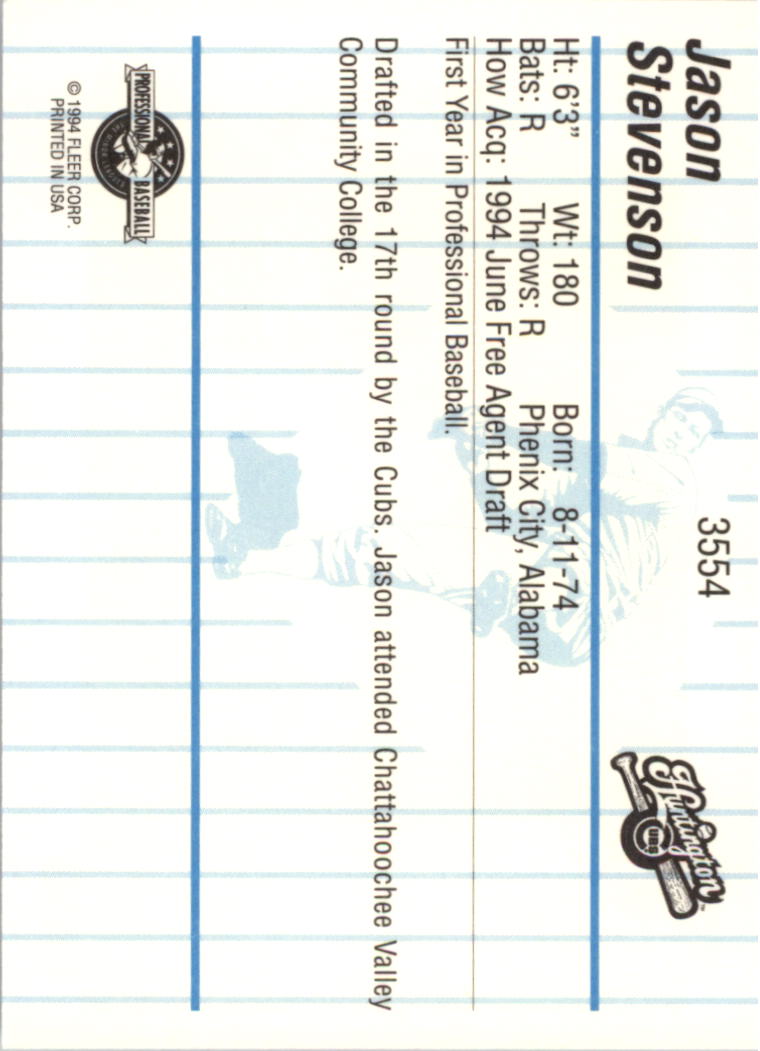 Jason
Stevenson
3554
Huntington
CUBS
Ht: 6'3" Wt: 180 Born: 8-11-74
Bats: R Throws: R Phenix City, Alabama
How Acq: 1994 June Free Agent Draft
First Year in Professional Baseball.
Drafted in the 17th round by the Cubs. Jason attended Chattahoochee Valley
Community College.
PROFESSIONAL BASEBALL
© 1994 FLEER CORP.
PRINTED IN USA